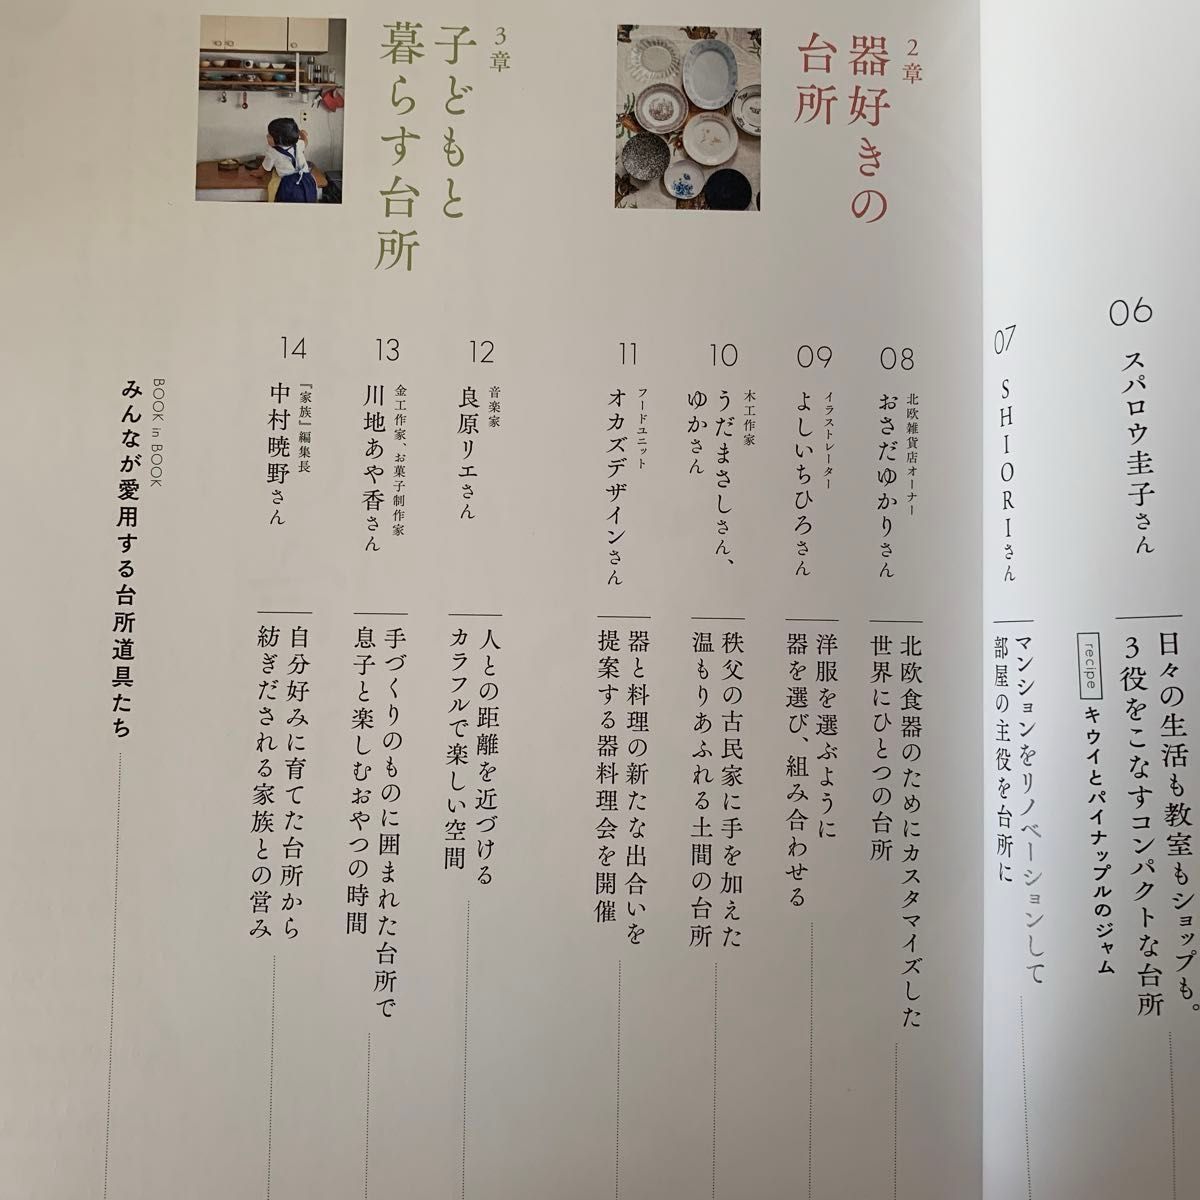 06
スパロウ圭子さん
日々の生活も教室もショップも。
3役をこなすコンパクトな台所
recipe
キウイとパイナップルのジャム
07
SHIORIさん
マンションをリノベーションして
部屋の主役を台所に
2章
器好きの
台所
08
北欧雑貨店オーナー
おさだゆかりさん
北欧食器のためにカスタマイズした
世界にひとつの台所
09
イラストレーター
よしいちひろさん
洋服を選ぶように
器を選び、組み合わせる
10
木工作家
うだまさしさん、
ゆかさん
秩父の古民家に手を加えた
温もりあふれる土間の台所
11
フードユニット
オカズデザインさん
器と料理の新たな出合いを
提案する器料理会を開催
3章
子どもと
暮らす台所
12
音楽家
良原リエさん
人との距離を近づける
カラフルで楽しい空間
13
金工作家、お菓子制作家
川地あや香さん
手づくりのものに囲まれた台所で
息子と楽しむおやつの時間
14
『家族』編集長
中村暁野さん
自分好みに育てた台所から
紡ぎだされる家族との営み
BOOK in BOOK
みんなが愛用する台所道具たち